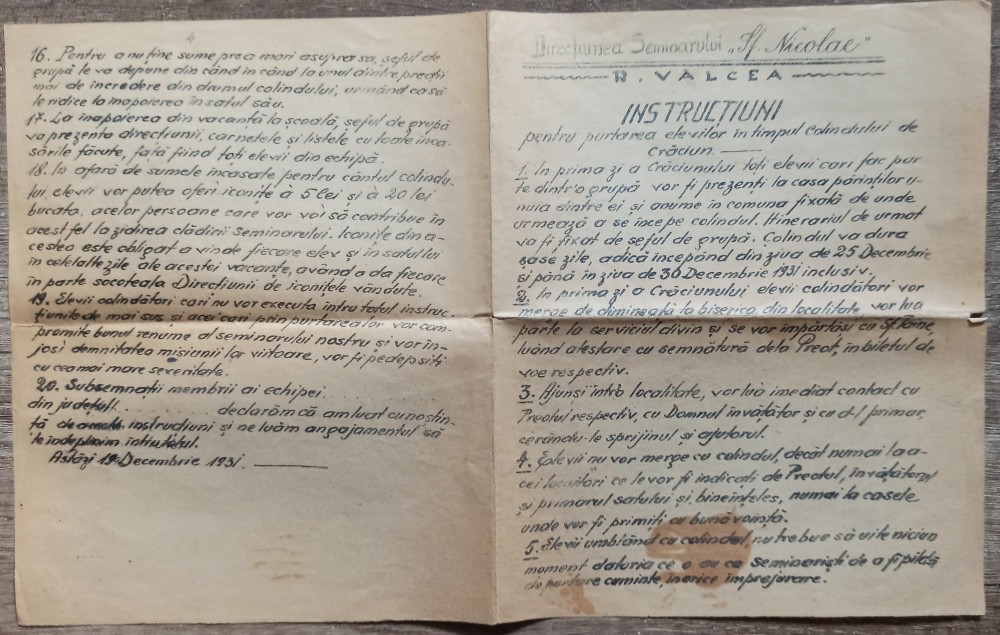 4
16. Pentru a nu ține sume prea mari asupra sa, șeful de
grupă le va depune din când în când la unul dintre preoții
mai de încredere din drumul colindului, urmând ca să
le ridice la înapoierea în satul său.
17. La înapoierea din vacanță la școală, șeful de grupă
va prezenta direcțiunii, carnetele și listele cu toate înca-
sările făcute, față fiind toți elevii din echipă.
18. În afară de sumele încasate pentru cântul colindu-
lui, elevii vor putea oferi iconițe à 5 lei și à 20 lei
bucata, acelor persoane care vor voi să contribue în
acest fel la zidirea clădirii seminarului. Iconițe din a-
cestea este obligat a vinde fiecare elev și în satul
în celelalte zile ale acestei vacanțe, având a da fiecare
în parte socoteala Direcțiunii de iconițele vândute.
19. Elevii colindători cari nu vor executa întru totul instruc-
țiunile de mai sus și acei cari prin purtarea lor vor com-
promite bunul renume al seminarului nostru și vor în-
josi demnitatea misiunii lor viitoare, vor fi pedepsiți
cu cea mai mare severitate.
20. Subsemnații membrii ai echipei
din județul . . . . . . . . declarăm că am luat cunoștin-
ță de instrucțiuni și ne luăm angajamentul să
le îndeplinim întru totul.
Astăzi 19 Decembrie 1931.
Direcțiunea Seminarului „Sf. Nicolae"
R. VÂLCEA
INSTRUCȚIUNI
pentru purtarea elevilor în timpul Colindului de
Crăciun.
1. În prima zi a Crăciunului toți elevii cari fac par
te dintr'o grupă vor fi prezenți la casa părinților u-
nuia dintre ei și anume în comuna fixată de unde
urmează a se începe colindul. Itinerariul de urmat
va fi fixat de șeful de grupă. Colindul va dura
șase zile, adică începând din ziua de 25 Decembrie
și până în ziua de 30 Decembrie 1931 inclusiv.
2. În prima zi a Crăciunului elevii colindători vor
merge de dimineață la biserica din localitate, vor lua
parte la serviciul divin și se vor împărtăși cu Sf. Taine,
luând atestare cu semnătură dela Preot, în biletul de
voe respectiv.
3. Ajunși într'o localitate, vor lua imediat contact cu
Preotul respectiv, cu Domnul învățător și cu d-l primar,
cerându-le sprijinul și ajutorul.
4. Elevii nu vor merge cu colindul, decât numai la a-
cei locuitori ce le vor fi indicați de Preotul, învățătorul
și primarul satului și, bineînțeles, numai la casele
unde vor fi primiți cu bună voință.
5. Elevii umblând cu colindul, nu trebue să uite niciun
moment datoria ce o au ca seminariști de a fi pildă
de purtare cuminte, în orice împrejurare.